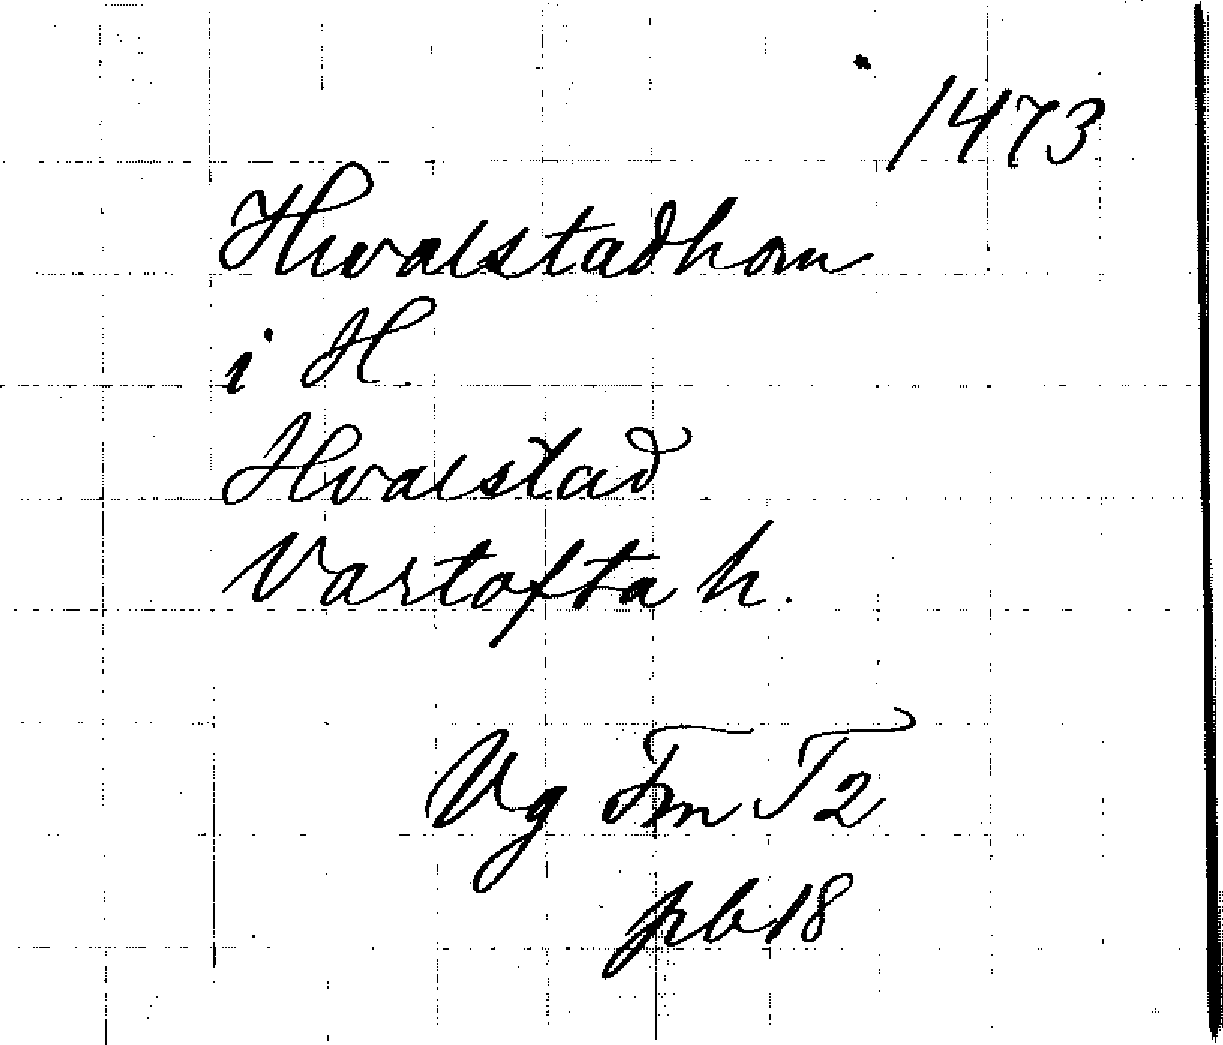 1473
Hwalstadhom
i H
Hvalstad
Vartofta h.
Vg Fm T2
pb 18